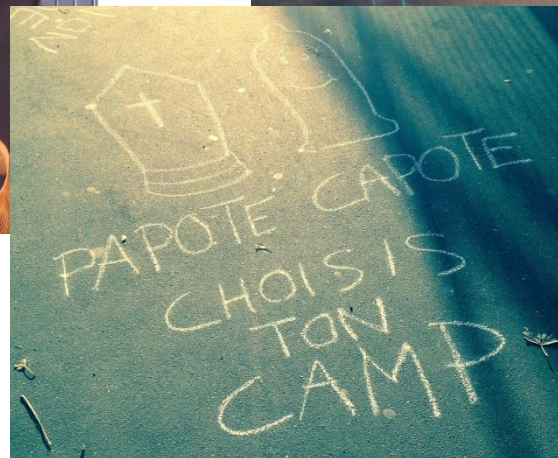 PAPOTE CAPOTE
CHOISIS
TON
CAMP